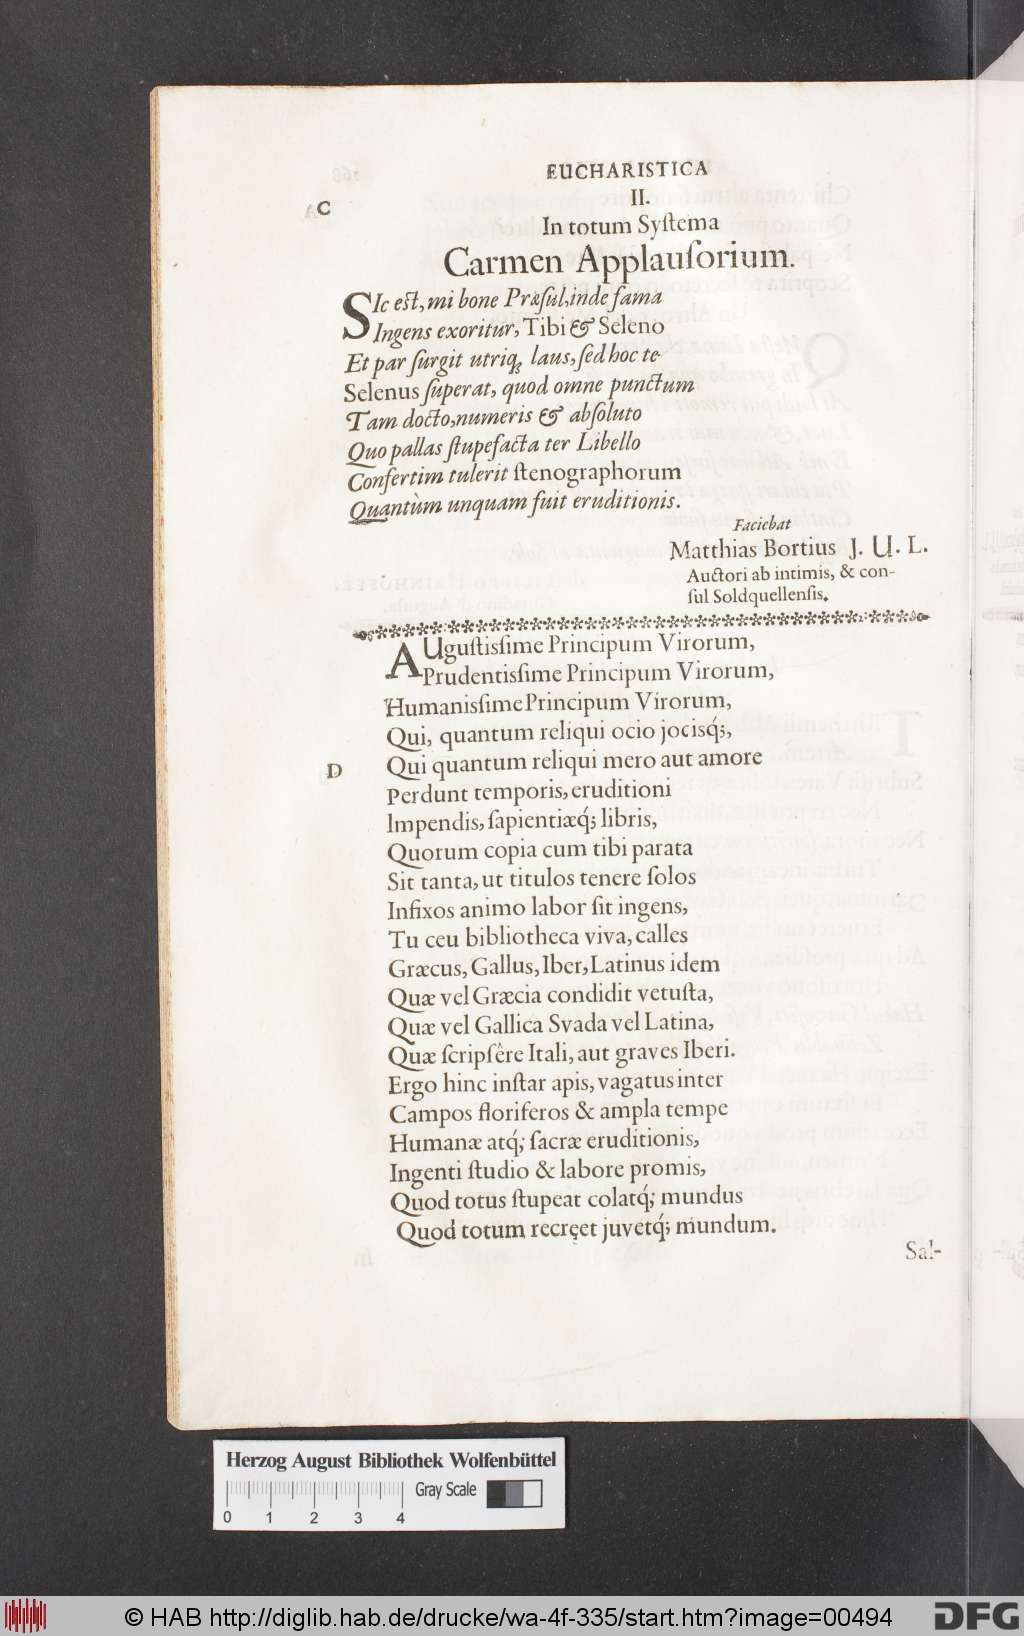 EUCHARISTICA
C
II.
In totum Syſtema
Carmen Applauſorium.
SIc eſt, mi bone Præſul, inde fama
Ingens exoritur, Tibi & Seleno
Et par ſurgit utriq; laus, ſed hoc te
Selenus ſuperat, quod omne punctum
Tam docto, numeris & abſoluto
Quo pallas ſtupefacta ter Libello
Confertim tulerit ſtenographorum
Quantùm unquam fuit eruditionis.
Faciebat
Matthias Bortius J. U. L.
Auctori ab intimis, & con-
ſul Soldquellenſis.
AUguſtisſime Principum Virorum,
Prudentisſime Principum Virorum,
Humanisſime Principum Virorum,
Qui, quantum reliqui ocio jocisq́;,
D
Qui quantum reliqui mero aut amore
Perdunt temporis, eruditioni
Impendis, ſapientiæq́; libris,
Quorum copia cum tibi parata
Sit tanta, ut titulos tenere ſolos
Infixos animo labor ſit ingens,
Tu ceu bibliotheca viva, calles
Græcus, Gallus, Iber, Latinus idem
Quæ vel Græcia condidit vetuſta,
Quæ vel Gallica Svada vel Latina,
Quæ ſcripſêre Itali, aut graves Iberi.
Ergo hinc inſtar apis, vagatus inter
Campos floriferos & ampla tempe
Humanæ atq́; ſacræ eruditionis,
Ingenti ſtudio & labore promis,
Quod totus ſtupeat colatq́; mundus
Quod totum recręet juvetq́; mundum.
Sal-
Herzog August Bibliothek Wolfenbüttel
Gray Scale
0 1 2 3 4
© HAB http://diglib.hab.de/drucke/wa-4f-335/start.htm?image=00494
DFG